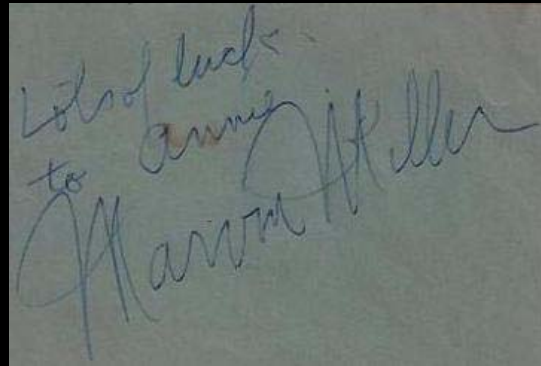 Lots of luck
to Annie
Marvin Miller